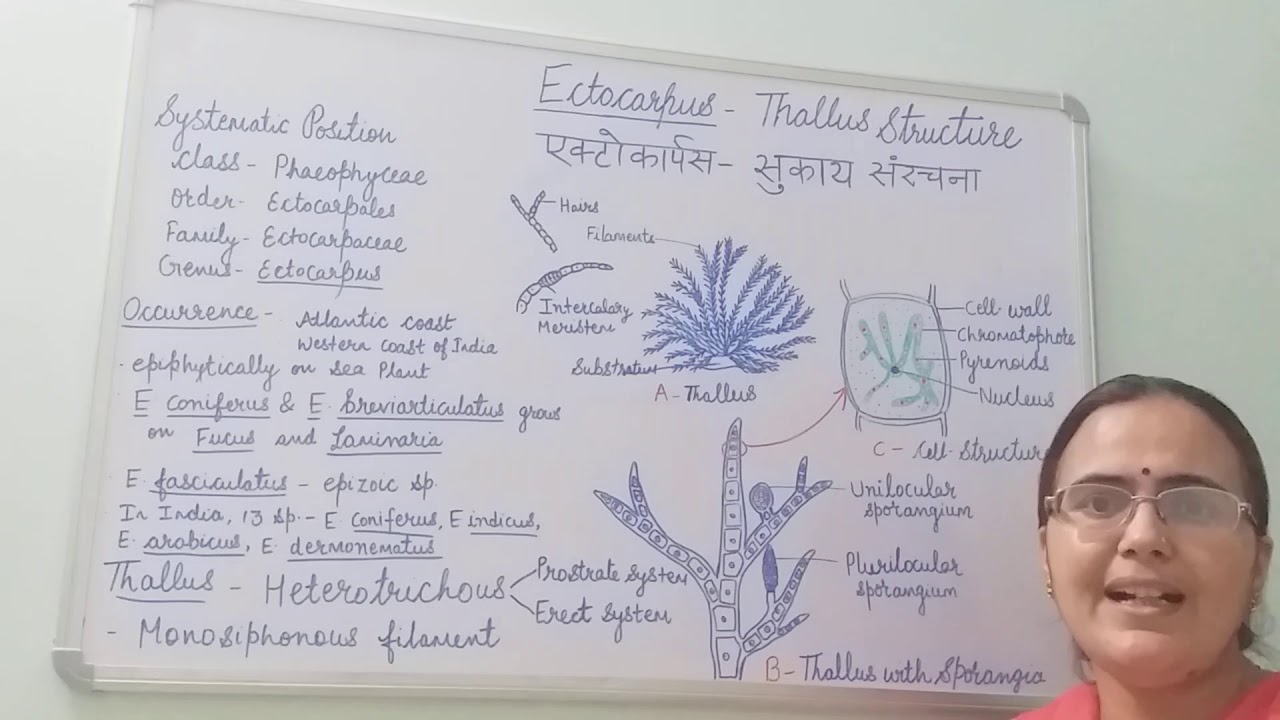 Ectocarpus - Thallus Structure
एक्टोकार्पस- सुकाय संरचना
Systematic Position
Class - Phaeophyceae
Order- Ectocarpales
Family- Ectocarpaceae
Genus- Ectocarpus
Occurrence - Atlantic coast
Western coast of India
· epiphytically on Sea Plant
E coniferus & E. breviarticulatus grows
on Fucus and Laminaria
E. fasciculatus - epizoic sp.
In India, 13 sp.- E. coniferus, E indicus,
E. arabicus, E. dermonematus
Thallus - Heterotrichous
Prostrate System
Erect System
- Monosiphonous filament
Hairs
Filaments
Intercalary
Meristem
Substratum
A - Thallus
Cell wall
Chromatophore
Pyrenoids
Nucleus
C - Cell Structure
Unilocular
Sporangium
Plurilocular
Sporangium
B - Thallus with Sporangia